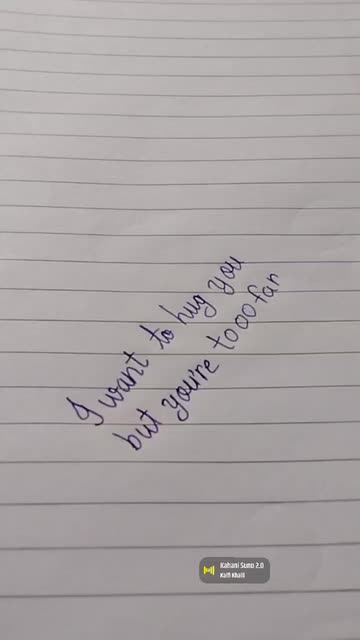 I want to hug you
but you're tooo far
Kahani Suno 2.0
Kaifi Khalil